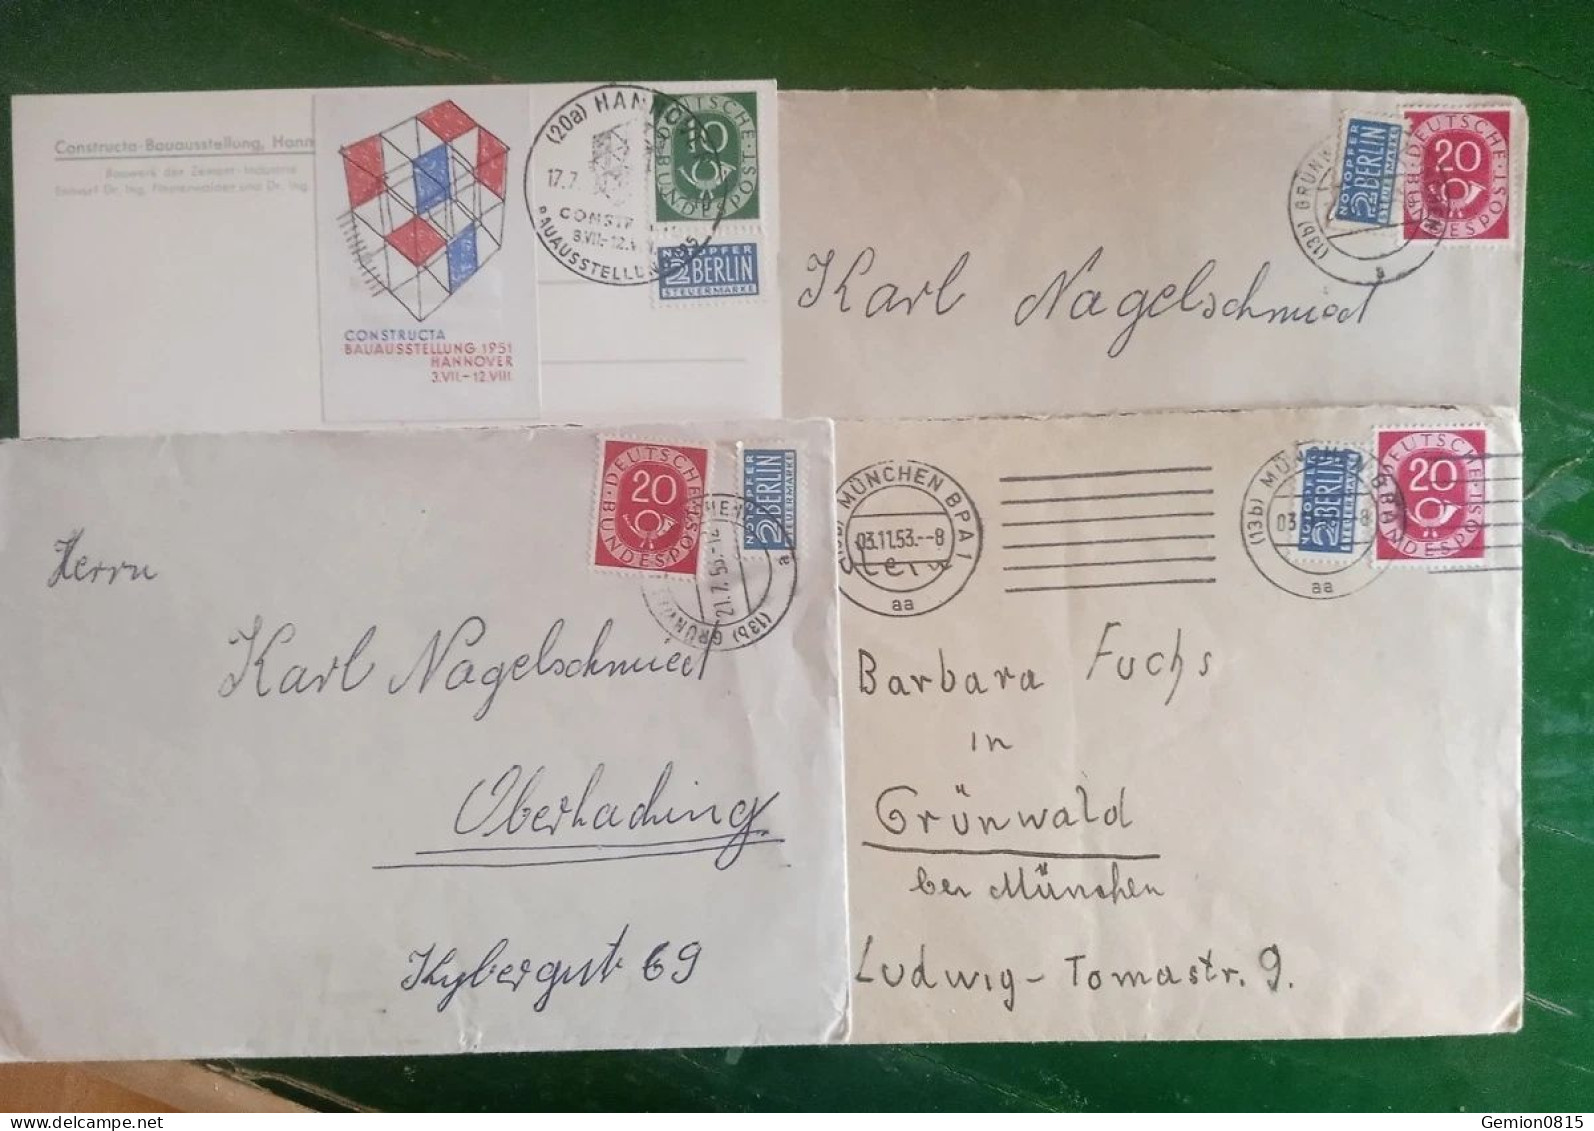 Constructa-Bauausstellung, Hann
Bauwerk der Zement-Industrie
Entwurf Dr. Ing. Finsterwalder und Dr. Ing.
CONSTRUCTA
BAUAUSSTELLUNG 1951
HANNOVER
3.VII.-12.VIII.
(20a) HANNOV
17.7.
CONSTR
BAUAUSSTELLUNG
DEUTSCHE
BUNDESPOST
10
NOTOPFER
2 BERLIN
STEUERMARKE
NOTOPFER
2 BERLIN
STEUERMARKE
DEUTSCHE
BUNDESPOST
20
(13b) GRÜNW
Karl Nagelschmied
DEUTSCHE
BUNDESPOST
20
NOTOPFER
2 BERLIN
STEUERMARKE
21.7.53.-
(13b) GRÜNW
a
Herrn
Karl Nagelschmied
Oberhaching
Kybergut 69
MÜNCHEN BPA 1
03.11.53.--8
aa
Stein
(13b) MÜNCHEN BPA
03
8
aa
2 BERLIN
DEUTSCHE
BUNDESPOST
20
Barbara Fuchs
in
Grünwald
bei München
Ludwig-Tomastr. 9.
www.delcampe.net
Gemion0815